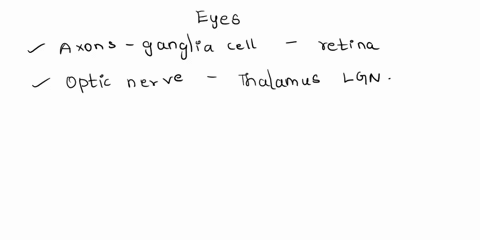 Eyes
✓ Axons - ganglia cell - retina
✓ Optic nerve - Thalamus LGN.